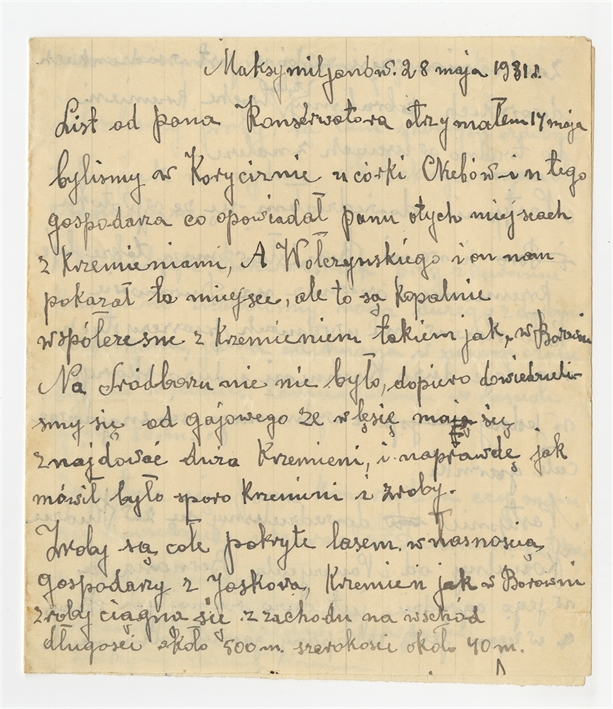 Maksymiljanów. 28 maja 1931 r.
List od pana Konserwatora otrzymałem 17 maja
bylismy w Korycirnie u córki tego
gospodarza co opowiadał panu otych miejscach
z krzemieniami, A Wołczynskiego i on nam
pokazał to miejsce, ale to są kopalnie
współczesne z krzemieniem takiem jak w Borowni
Na Śródborzu nie nie było, dopiero dowiedzieli-
smy się od gajowego ze w lęsię mają się
znajdować duza Krzemieni, i naprawdę jak
mówił było sporo krzemini i zroby.
Zroby są cołe pokryte lasem. własnoscią
gospodarzy z Jaskova, Krzemien jak w Borowni
zroby ciągna się z zachodu na wschód
długośći około 500 m. szerokosci około 40 m.